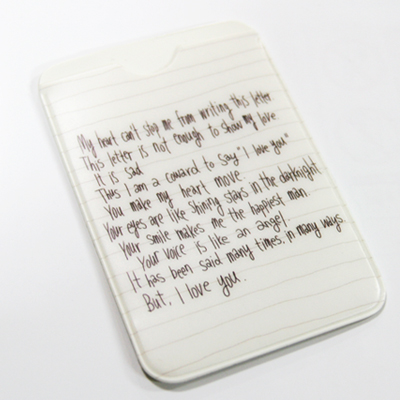 My heart can't stop me from writing this letter
This letter is not enough to show my love
It is sad
Thus I am a coward to say "I love you"
You make my heart move
Your eyes are like shining stars in the darknight.
Your smile makes me the happiest man.
Your voice is like an angel.
It has been said many times, in many ways.
But, I love you.